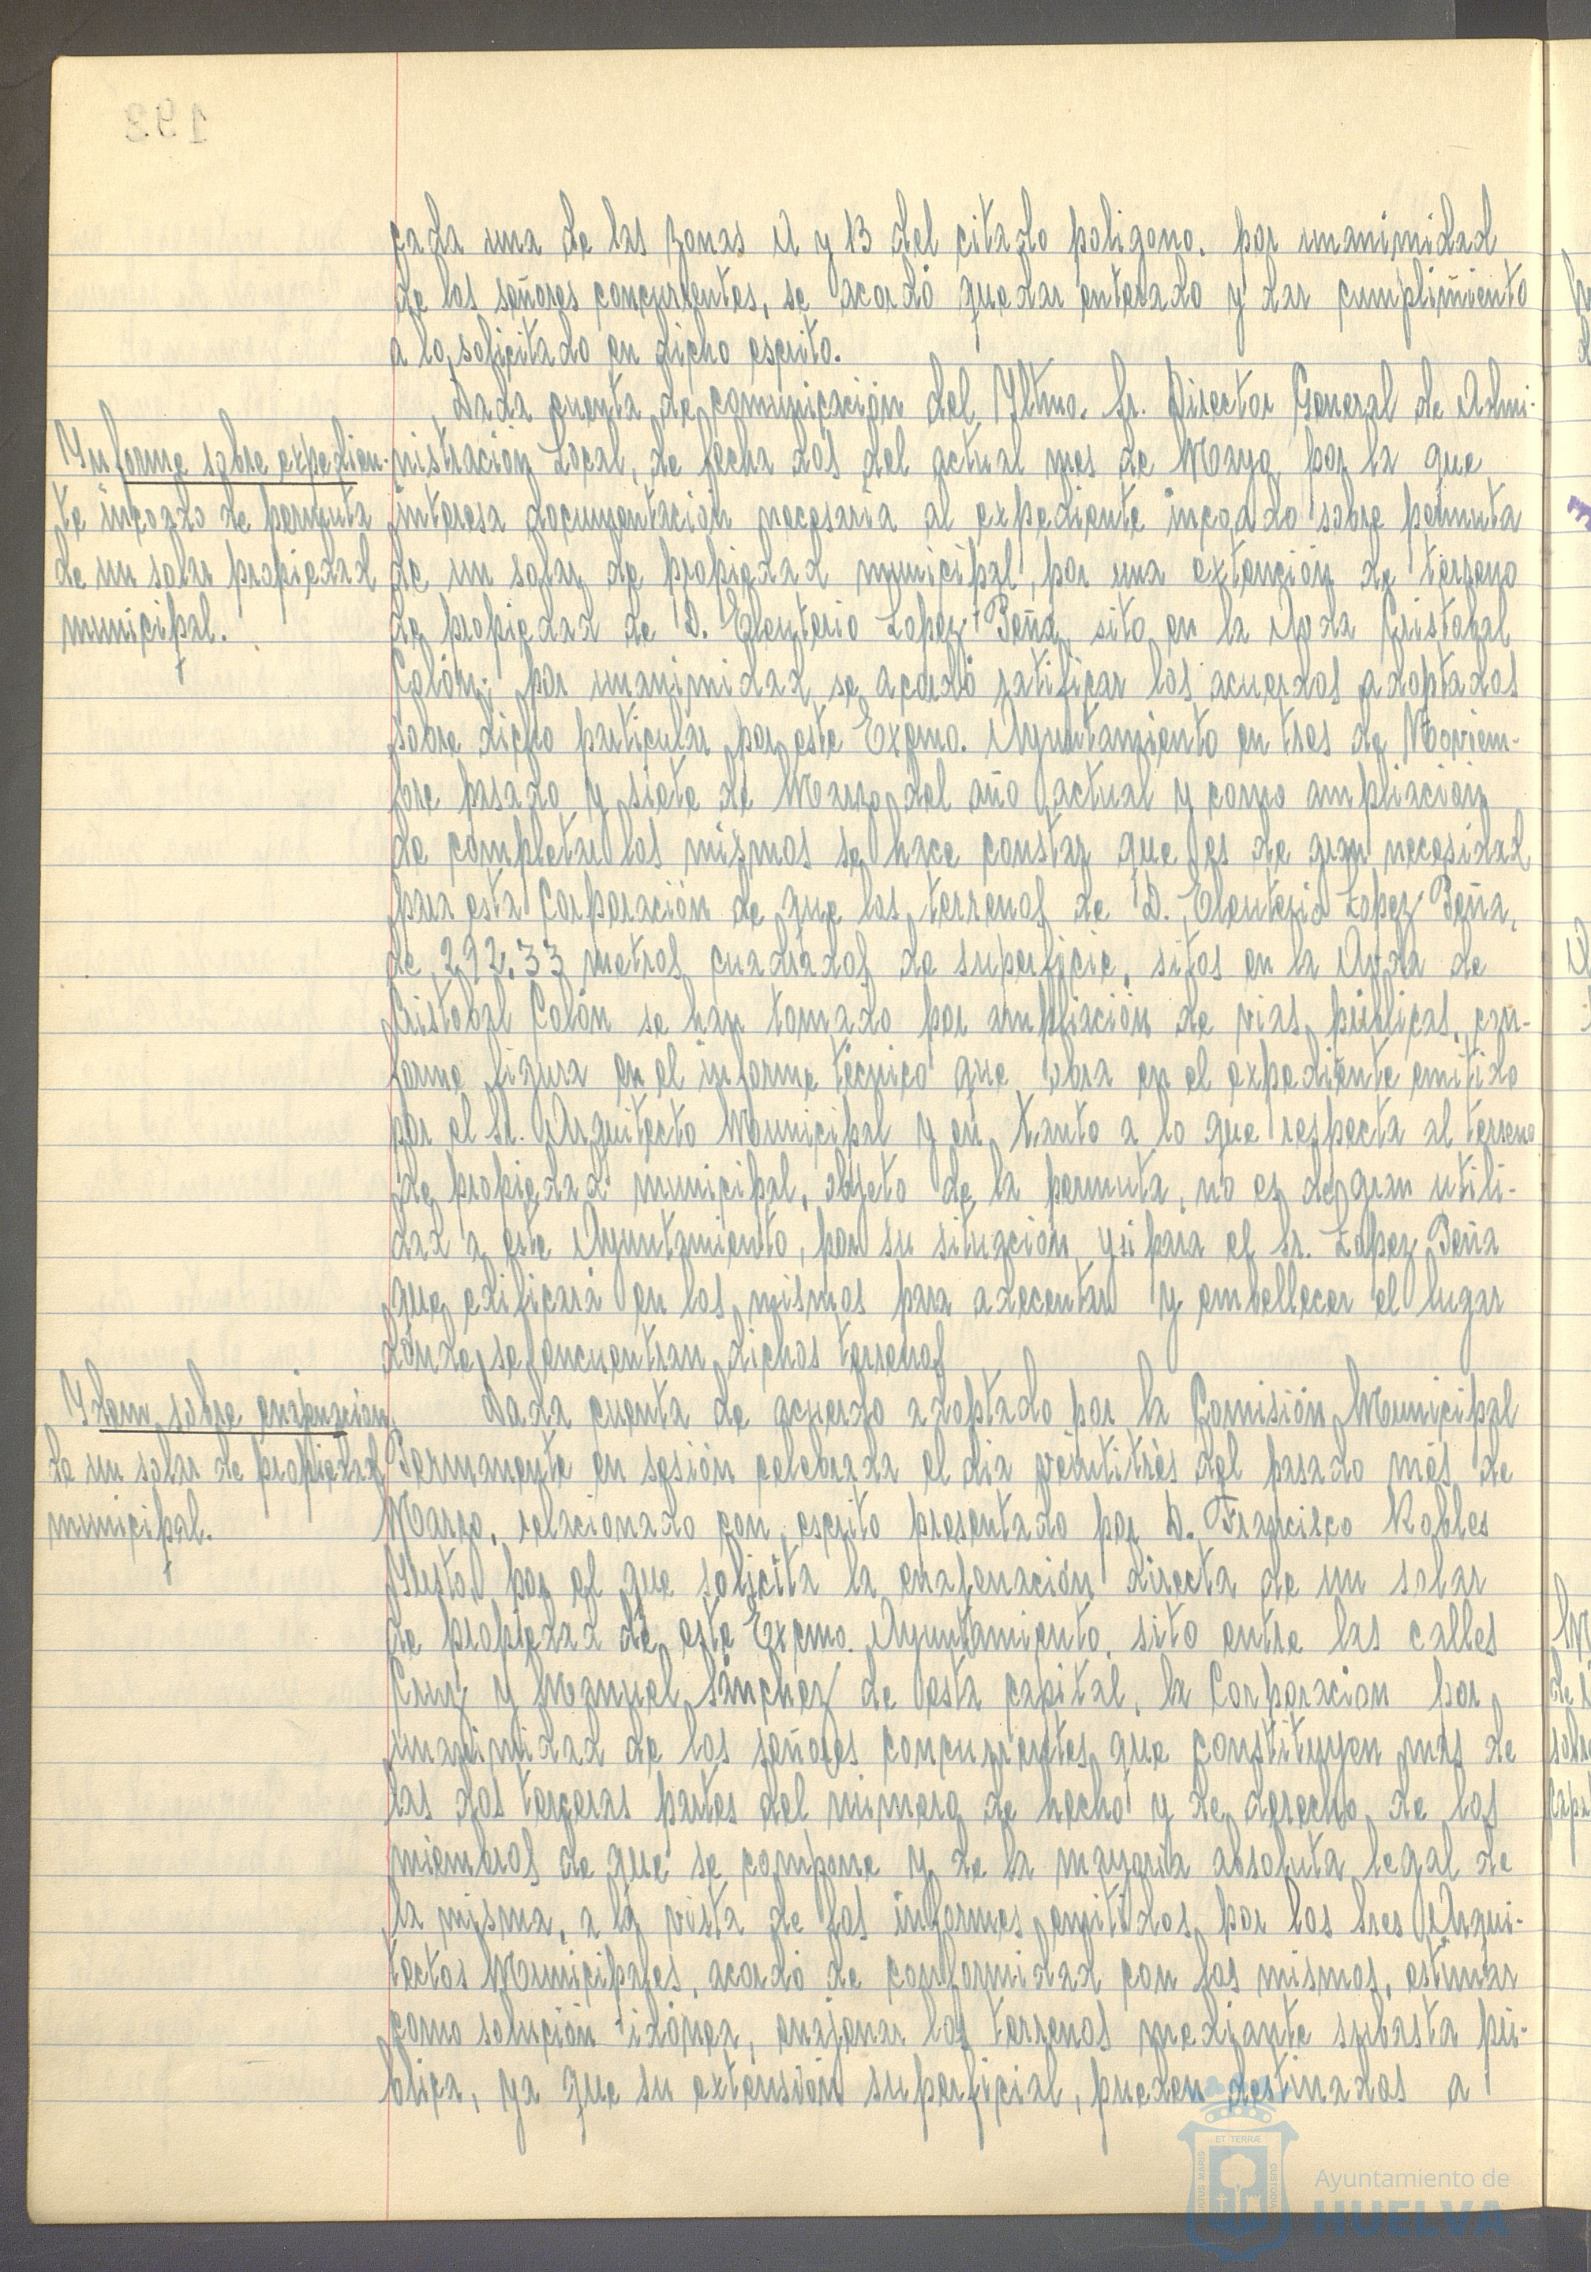 cada una de las zonas A y B del citado poligono, por unanimidad
de los señores concurrentes, se acordó quedar enterado y dar cumplimiento
a lo solicitado en dicho escrito.
Informe sobre expedien-
te incoado de permuta
de un solar propiedad
municipal.
Dada cuenta de comunicación del Yltmo. Sr. Director General de Admi-
nistración Local, de fecha dos del actual mes de Mayo, por la que
interesa documentación necesaria al expediente incoado sobre permuta
de un solar de propiedad municipal, por una extención de terreno
de propiedad de D. Eleuterio Lopez Peña, sito en la Avda Cristobal
Colón; por unanimidad se acordó ratificar los acuerdos adoptados
sobre dicho particular por este Excmo. Ayuntamiento en tres de Noviem-
bre pasado y siete de Marzo del año actual y como ampliación
de completar los mismos se hace constar que es de gran necesidad
para esta Corporación de que los terrenos de D. Eleuterio Lopez Peña,
de 292,33 metros cuadrados de superficie, sitos en la Avda de
Cristobal Colón se han tomado por ampliación de vias públicas, con-
forme figura en el informe técnico que obra en el expediente emitido
por el Sr. Arquitecto Municipal y en tanto a lo que respecta al terreno
de propiedad municipal, objeto de la permuta, no es de gran utili-
dad a este Ayuntamiento, por su situación, y si para el Sr. Lopez Peña
que edificará en los mismos para adecentar y embellecer el lugar
donde se encuentran dichos terrenos
Ydem sobre enajenación
de un solar de propiedad
municipal.
Dada cuenta de acuerdo adoptado por la Comisión Municipal
Permanente en sesión celebrada el dia veintitrés del pasado mes de
Marzo, relacionado con escrito presentado por D. Francisco Robles
Justo, por el que solicita la enajenación directa de un solar
de propiedad de este Excmo. Ayuntamiento, sito entre las calles
Cruz y Manuel Sánchez de esta capital, la Corporacion por
unanimidad de los señores concurrentes que constituyen mas de
las dos terceras partes del número de hecho y de derecho de los
miembros de que se compone y de la mayoria absoluta legal de
la misma, a la vista de los informes emitidos por los Sres Arqui-
tectos Municipales, acordó de conformidad con los mismos, estimar
como solución idónea, enajenar los terrenos mediante subasta pú-
blica, ya que su extensión superficial, pueden destinados a
Ayuntamiento de
HUELVA